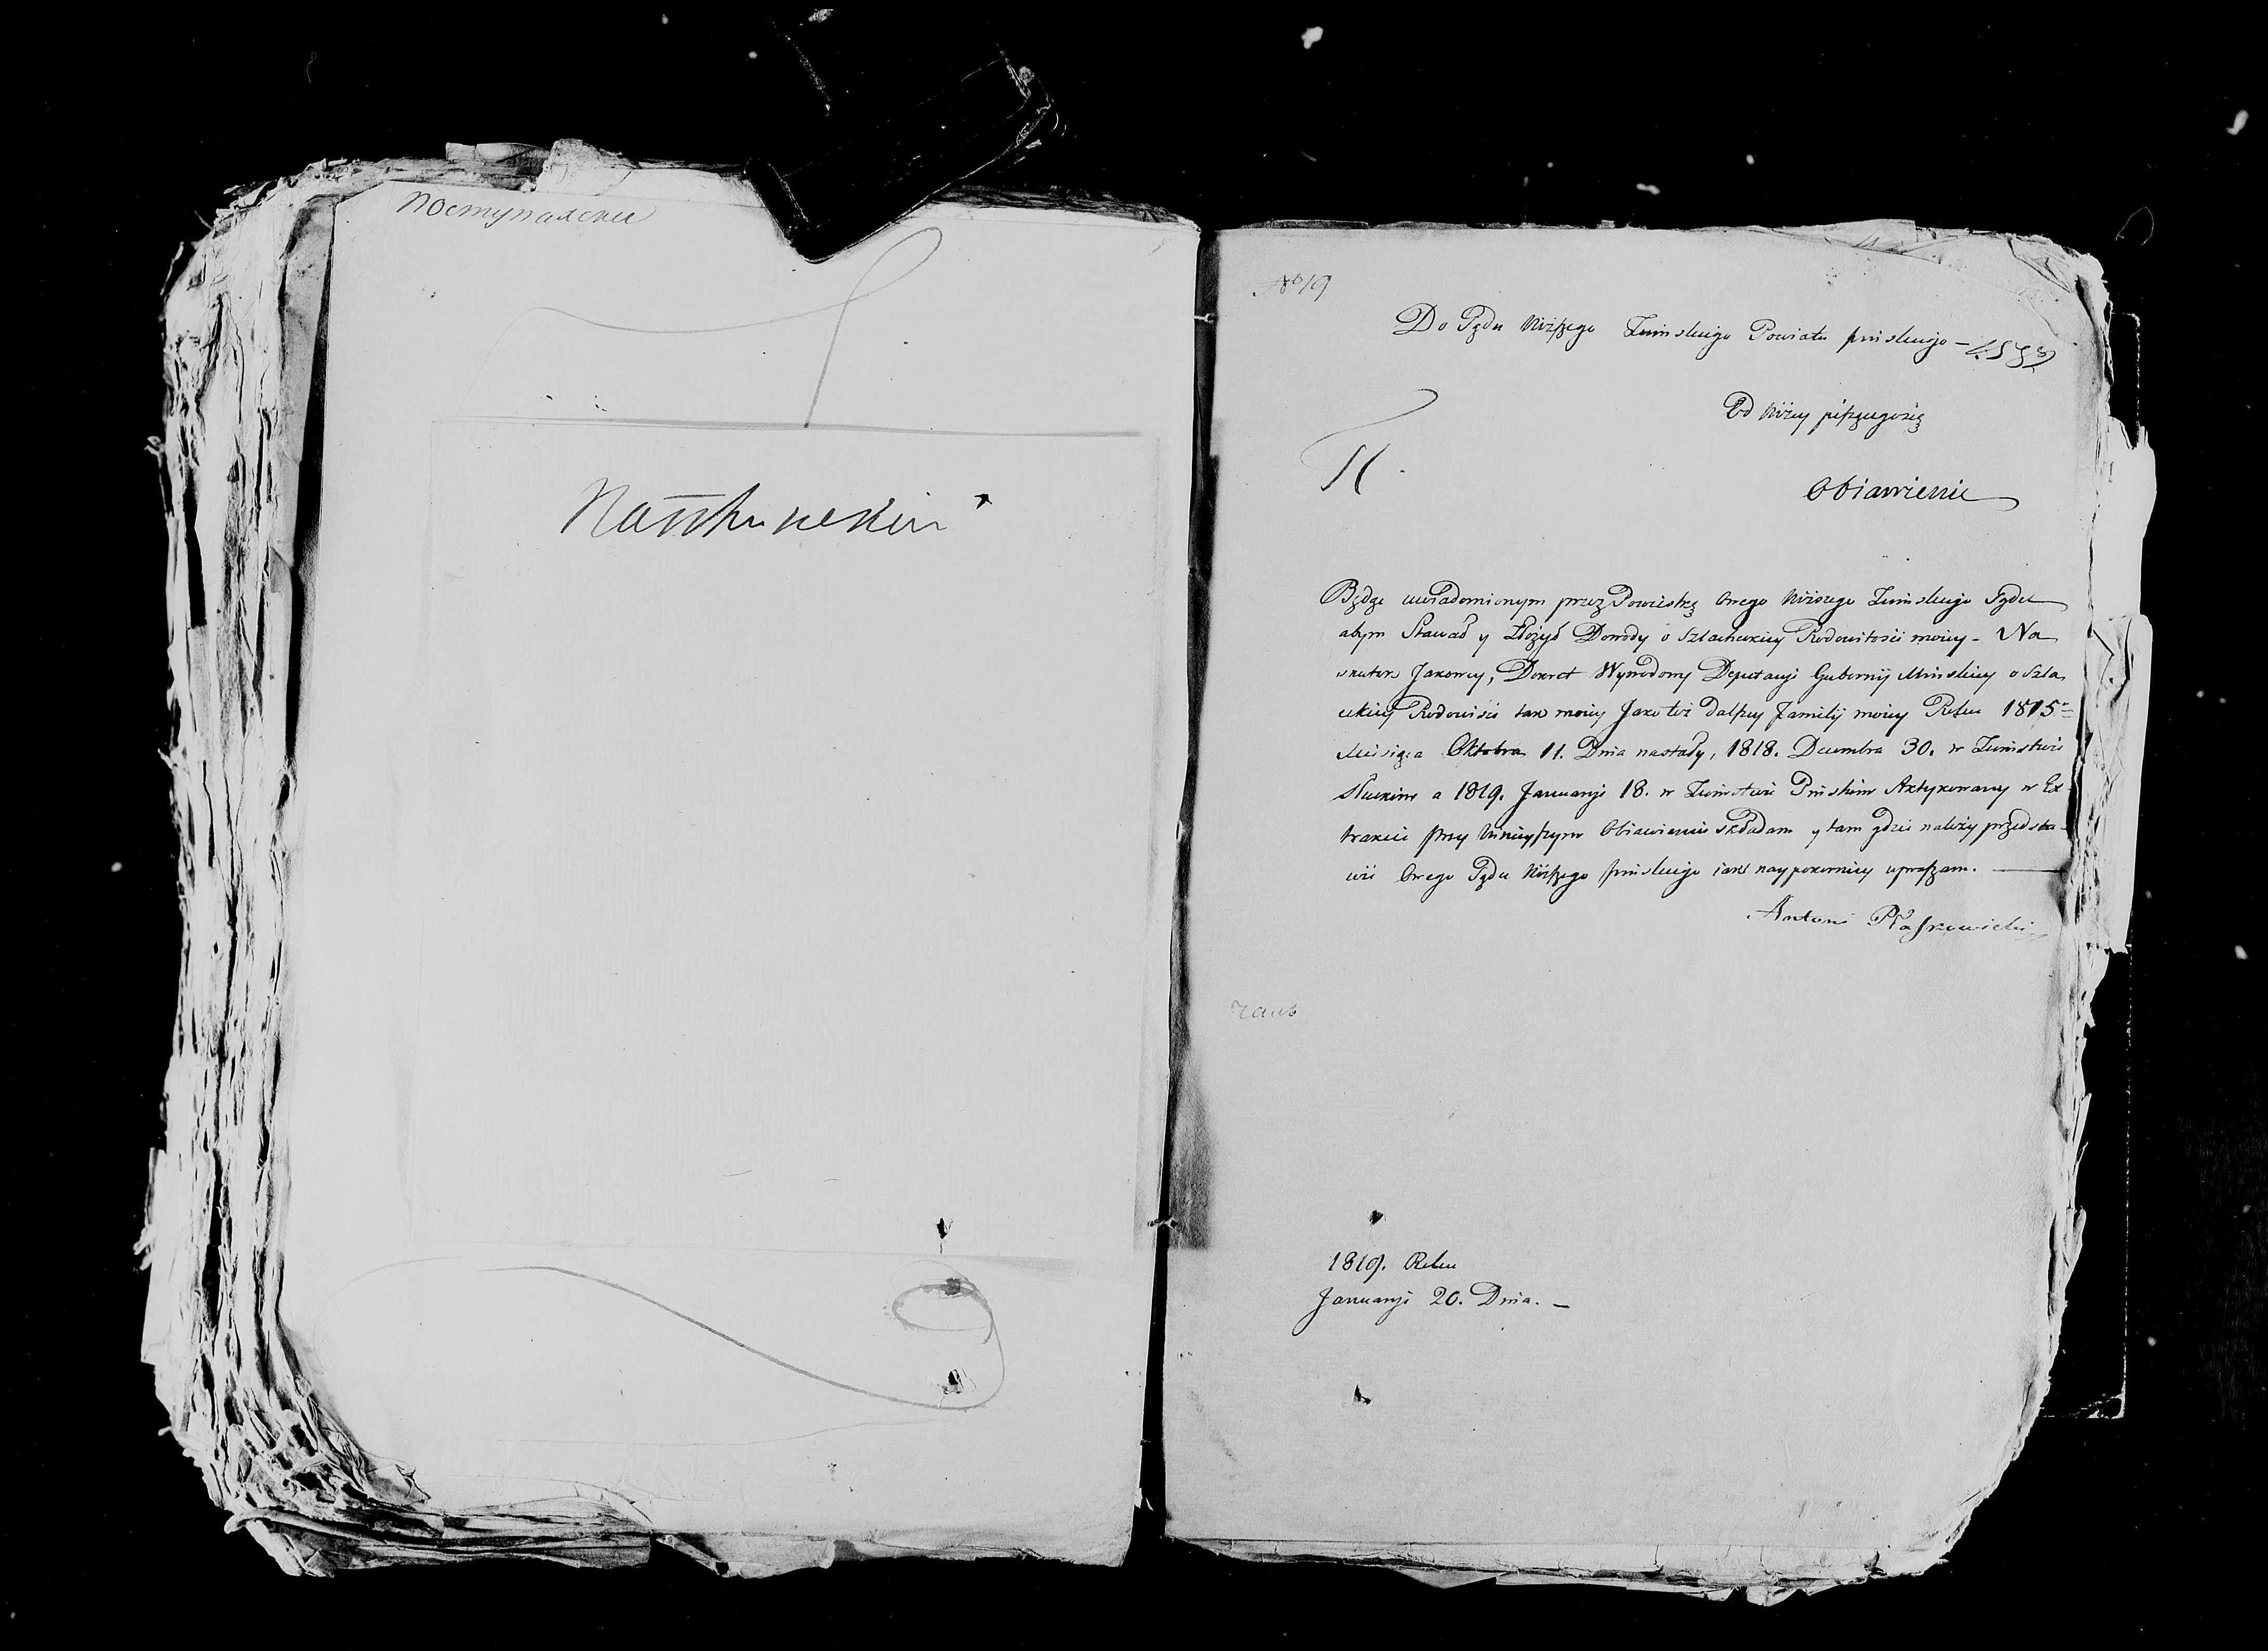 поступалски
No 19
Do Sądu Niższego Ziemskiego Powiatu pinskiego –
Od Niżey piszącegosię
Obiawienie
Będąc uwiadomionym przez Powiestkę Onego Niższego Ziemskiego Sądu
abym Stawał y Złożył Dowody o Szlacheckiey Rodowitości moiey – Na
skutek Jakowey, Dekret Wywodowy Deputacyi Gubernij Minskiey o Szla
checkiey Rodowiści tak moiey Jako też dalszey Familij moiey Roku 1815
Miesiąca Oktobra 11. Dnia nastały, 1818. Decembra 30. w Ziemstwie
Słuckim a 1819. Januaryi 18. w Ziemstwie Pinskim Aktykowany w Ex
trakcie przy Ninieyszym Obiawieniu składam y tam gdzie należy przedsta-
wić Onego Sądu Niższego pinskiego iak naypokorniey upraszam. –
Antoni
1819. Roku
Januaryi 20. Dnia. –